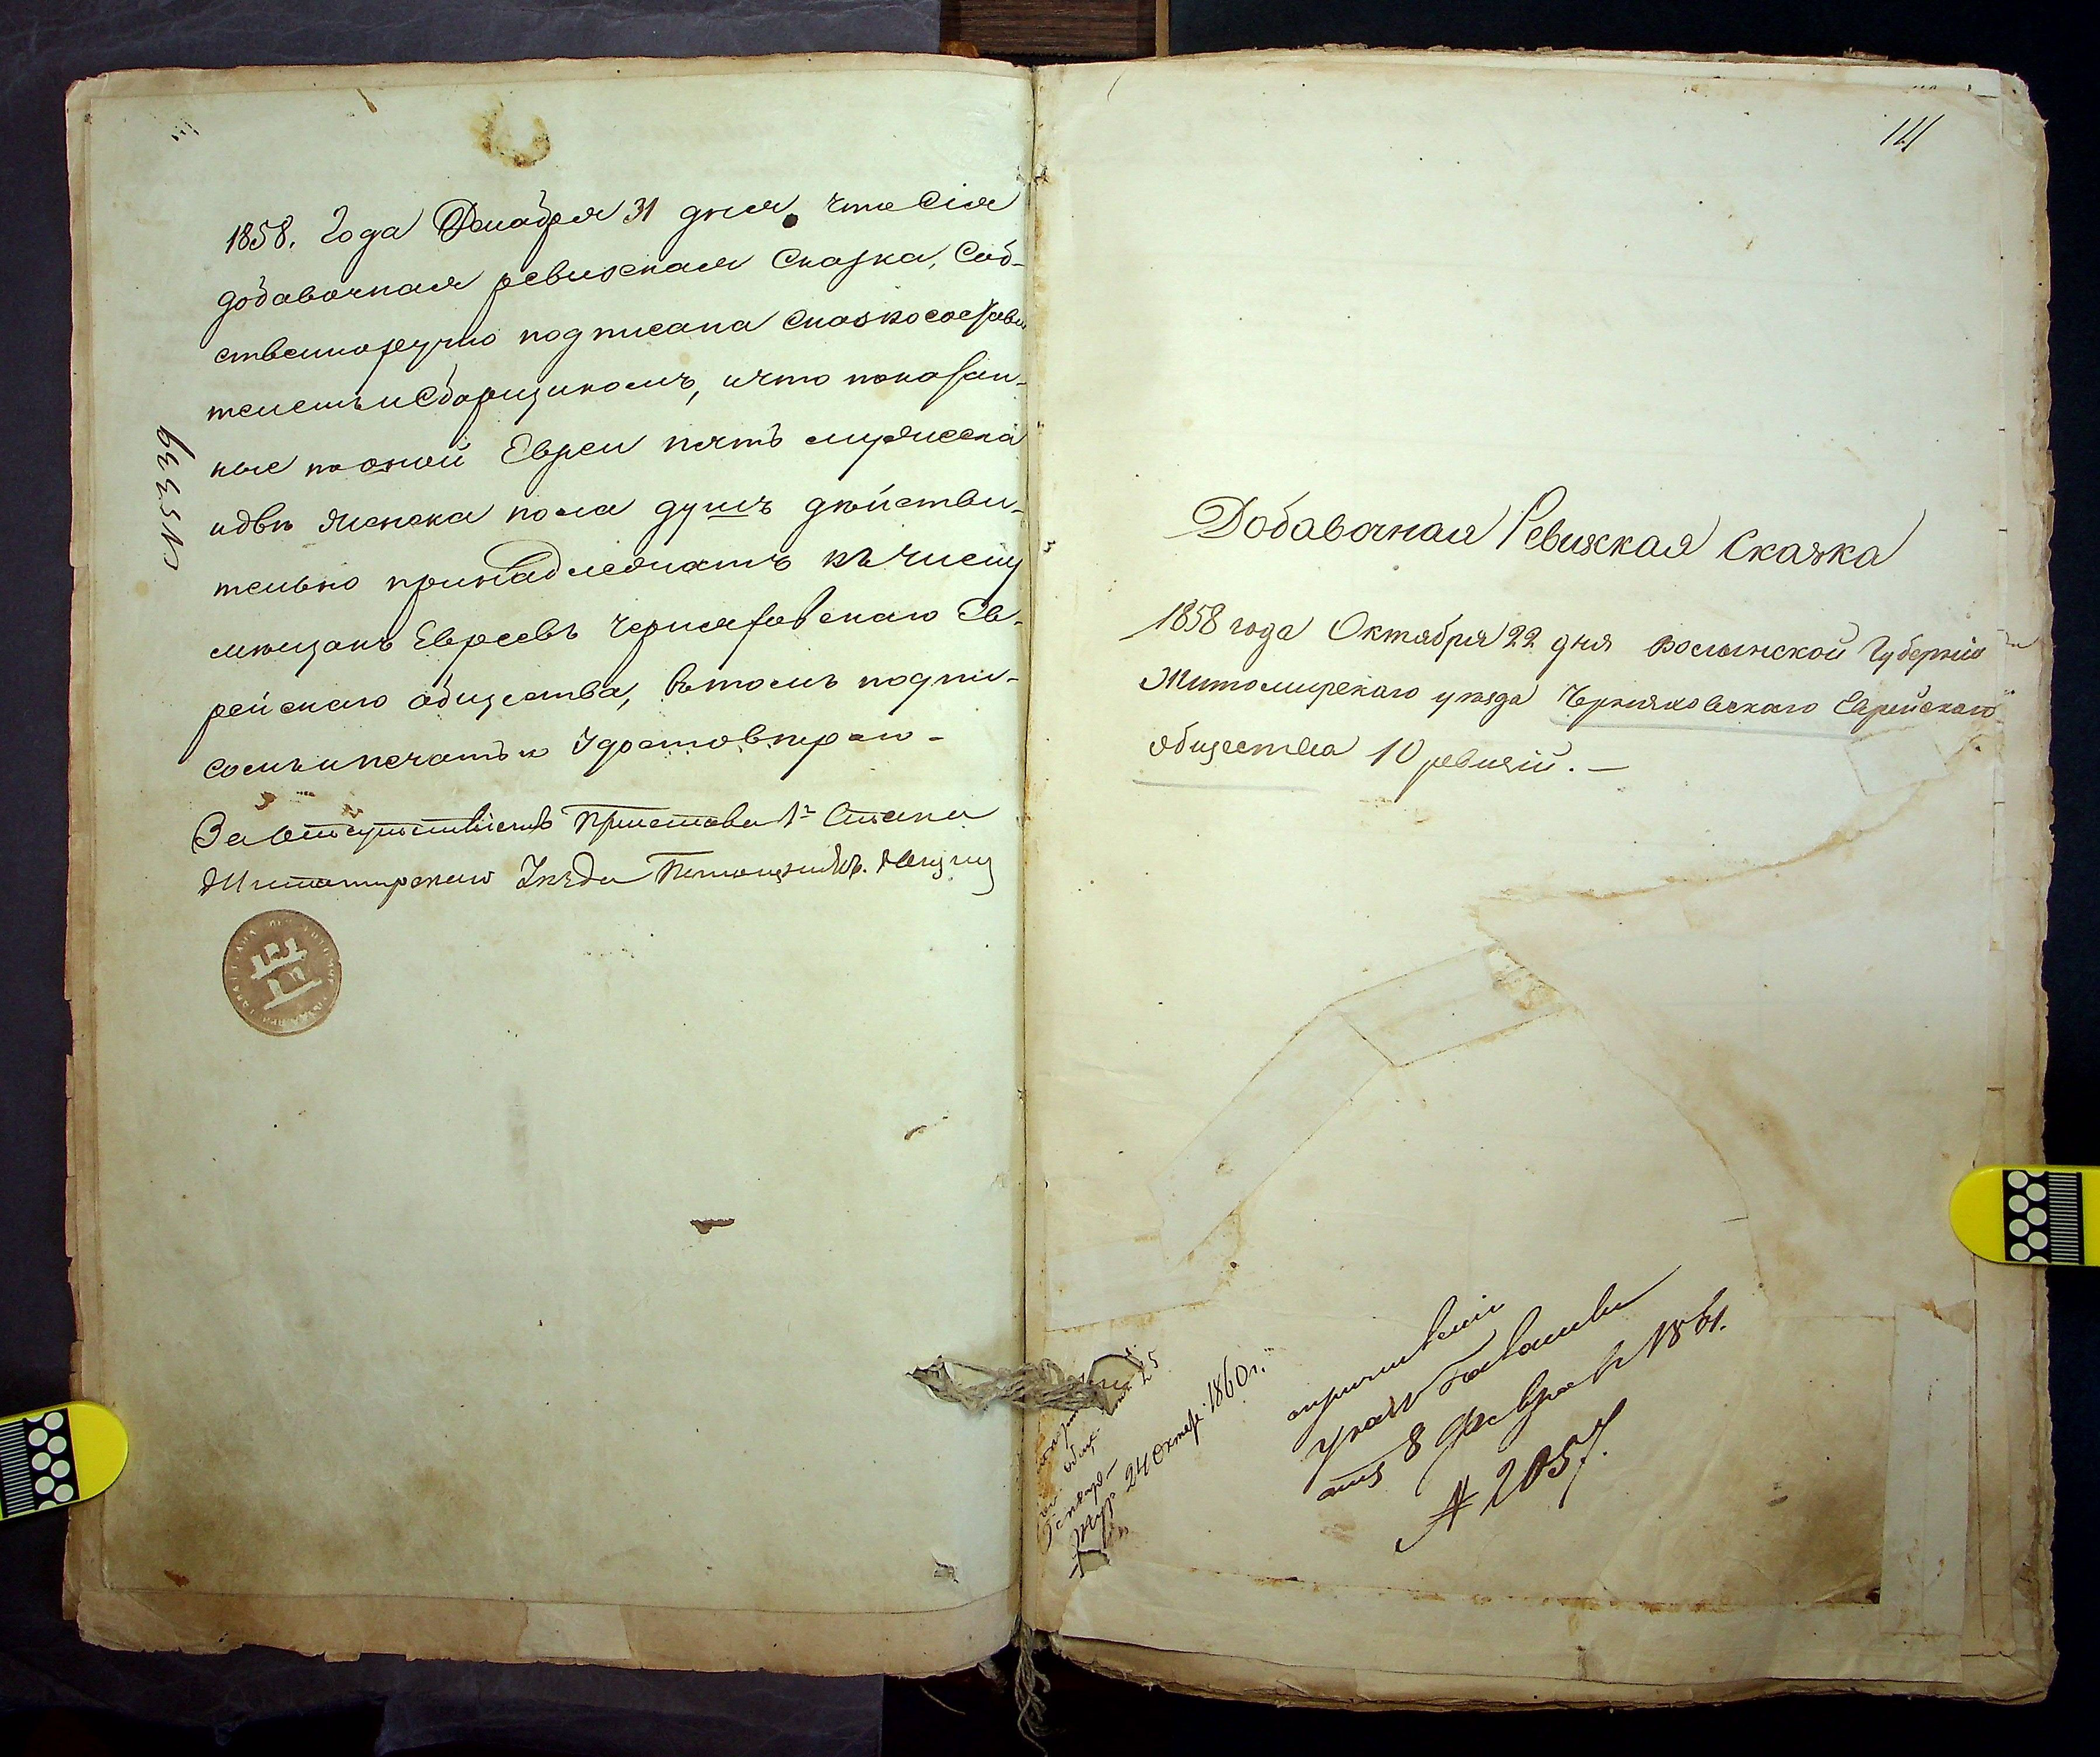 1858. Года Декабря 31 дня, что Сія
добавочная ревизская Сказка, Соб-
ственноручно подписана Сказкосостави
телемъ и Сборщикомъ, и что показан-
ные по оной Евреи пять мужеска
и двѣ женска пола душъ дѣйстви-
тельно принадлежатъ къ числу
мѣщанъ Евреевъ Черняховскаго Ев-
рейскаго общества, въ томъ подпи-
сомъ и печатью Удостовѣряю -
За отсутствіемъ Пристава 1го Стана
Житомирскаго Уѣзда
№ 3339
141
Добавочная Ревизская Сказка
1858 года Октября 22 дня Волынской Губерніи
Житомирскаго уѣзда Черняховскаго Еврейскаго
общества 10 ревизіи. —
25
24 октяб. 1860 г.
причислены
указъ Палаты
отъ 8 Февраля 1861.
№ 2057.